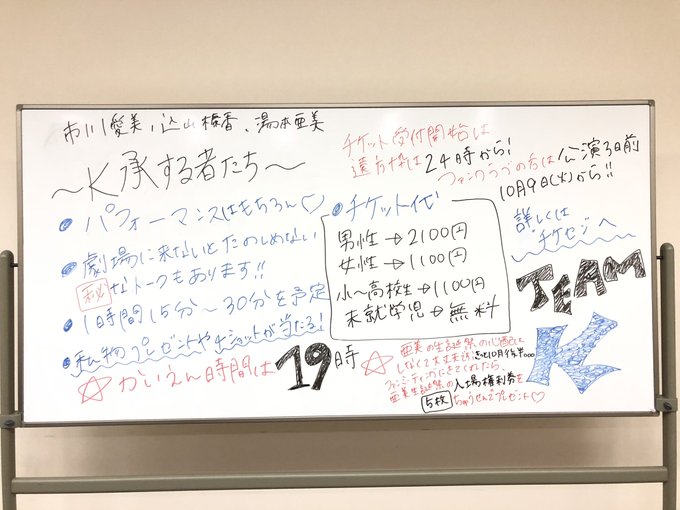 市川愛美、込山榛香、湯本亜美
〜K承する者たち〜
・パフォーマンスはもちろん♡
・劇場に来ないとたのしめない
㊙なトークもあります!!
・1時間15分〜30分を予定
・私物プレゼントや2ショットが当たる!
☆かいえん時間は19時
チケット受付開始は
遠方枠は24時から!
ファンクラブの方は公演3日前
10月9日(火)から!!
詳しくは
チケセンへ
・チケット代
男性→2100円
女性→1100円
小〜高校生→1100円
未就学児→無料
TEAM
K
☆亜美の生誕祭の心配は
しなくて大丈夫
10月後半...
きてくれたら、
亜美生誕祭の入場権利券を
5枚 ちゅうせんでプレゼント♡